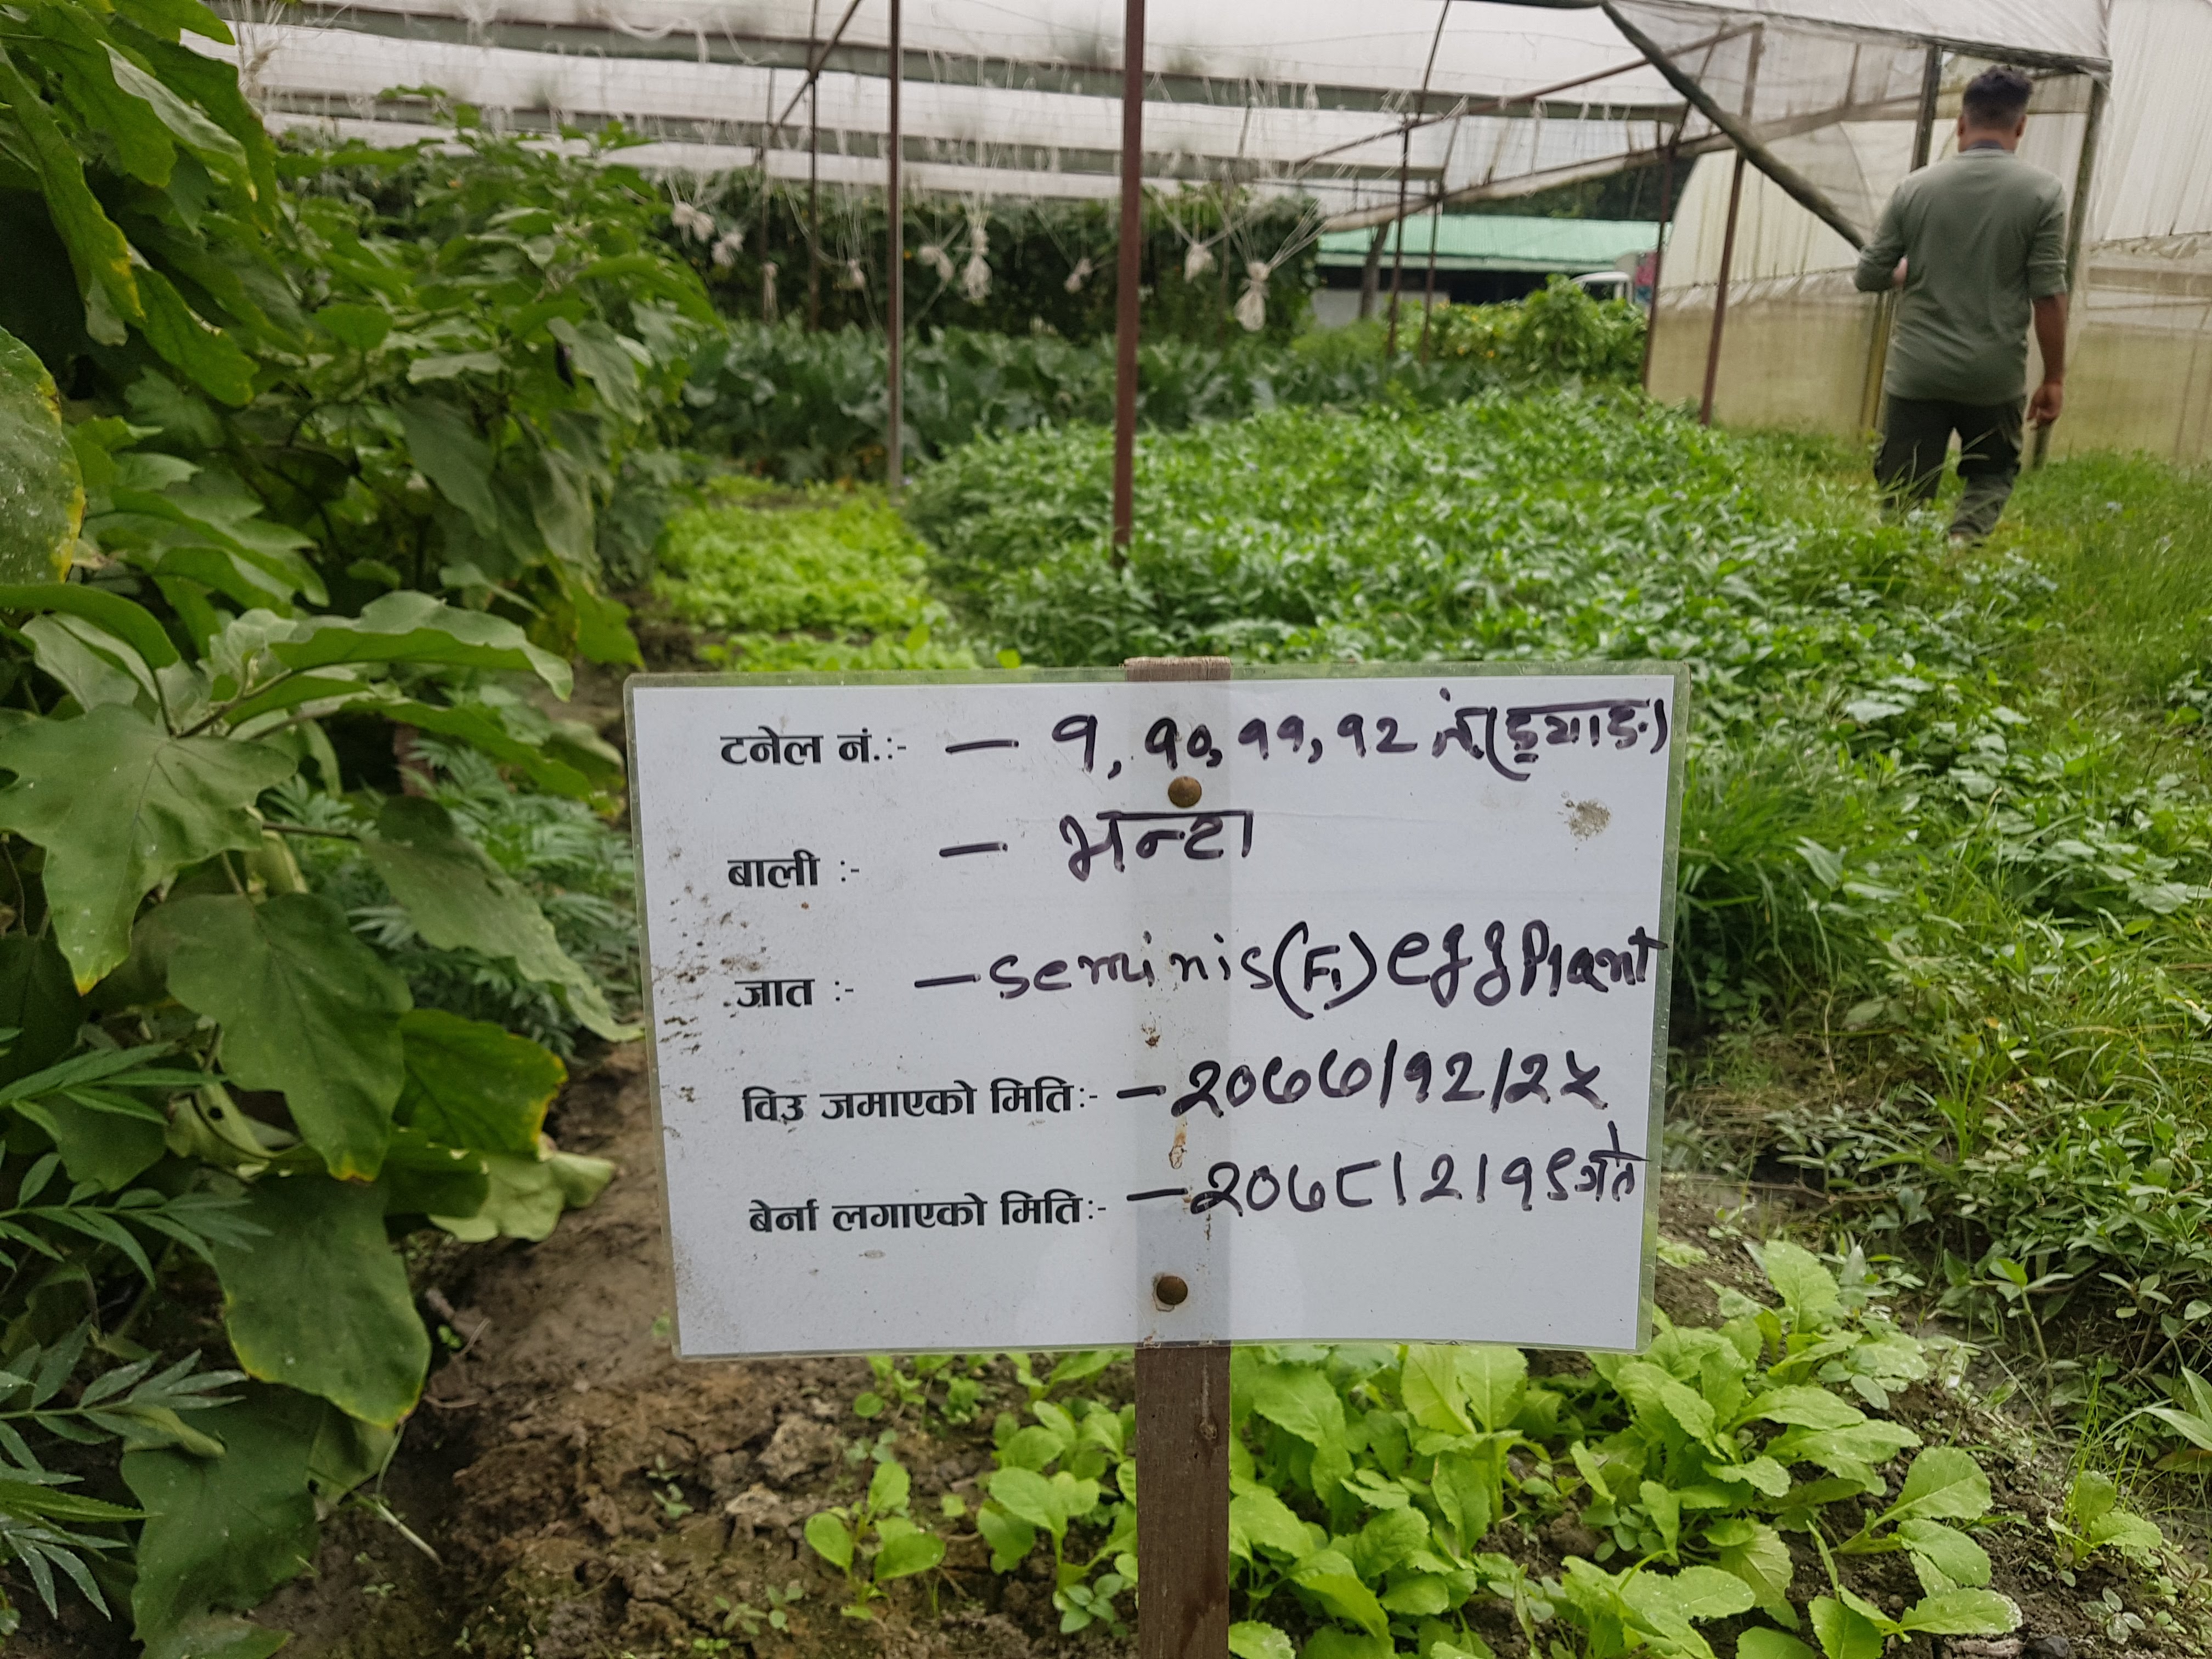 टनेल नं.:- — १, १०, ११, १२ नं (ड्याङ)
बाली :- — भन्टा
जात :- — seminis (F1) eggPlant
विउ जमाएको मिति:- — २०७७/१२/२५
बेर्ना लगाएको मिति:- — २०७८/२/१९ गते